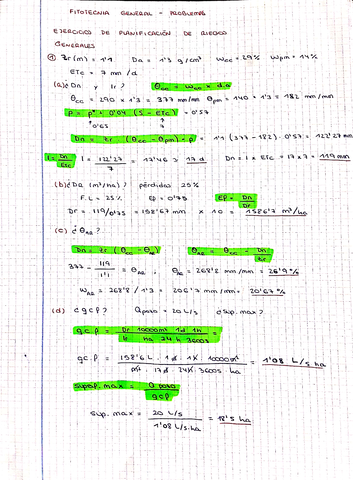 FITOTECNIA GENERAL - PROBLEMAS
EJERCICIOS DE PLANIFICACIÓN DE RIEGOS
GENERALES
① Zr(m) = 1'1 Da = 1'3 g/cm³ Wcc = 29% Wpm = 14%
ETc = 7 mm/d
(a) ¿Dn y Ir? θcc = Wcc · da
θcc = 290 × 1'3 = 377 mm/mm θpm = 140 · 1'3 = 182 mm/mm
P = p* + 0'04 (5 - ETc) = 0'57
0'65 7
Dn = zr · (θcc - θpm) · p = 1'1 (377 - 182) · 0'57 = 122'27 mm
I = Dn/ETc I = 122'27/7 = 17'46 ≫ 17 d Dn = I × ETc = 17 × 7 = 119 mm
(b) ¿DR (m³/ha)? pérdidas 25%
F.L = 25% Ep = 0'75 EP = Dn/Dr
Dr = 119/0'75 = 158'67 mm × 10 = 1586'7 m³/ha
(c) ¿θAR?
Dn = zr (θcc - θAR) θAR = θcc - Dn/zr
377 - 119/1'1 = θAR ; θAR = 268'8 mm/mm = 26'9%
WAR = 268'8 / 1'3 = 206'7 mm/mm = 20'67%
(d) ¿gcp? Qpozo = 20 L/s ¿sup. max?
gcp = Dr 10000m² 1d 1h / I ha 24h 3600s =
gc.p = 158'6 L · 1d · 1h 10000m² / m² · 17d · 24h · 3600s · ha = 1'08 L/s ha
Superf. max = Q pozo / gcp
Sup. max = 20 L/s / 1'08 L/s.ha = 18'5 ha